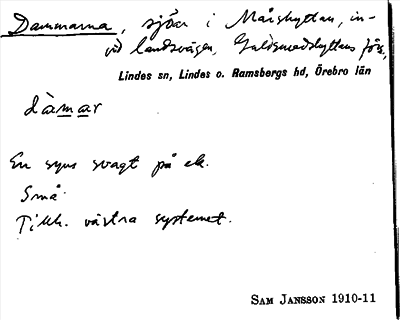 Dammarna, sjöar i Måshyttan, in-
vid landsvägen, Guldsmedshyttans förs.
Lindes sn, Lindes o. Ramsbergs hd, Örebro län
dàmar
En syns svagt på ek.
Små.
Tillh. västra systemet.
SAM JANSSON 1910-11